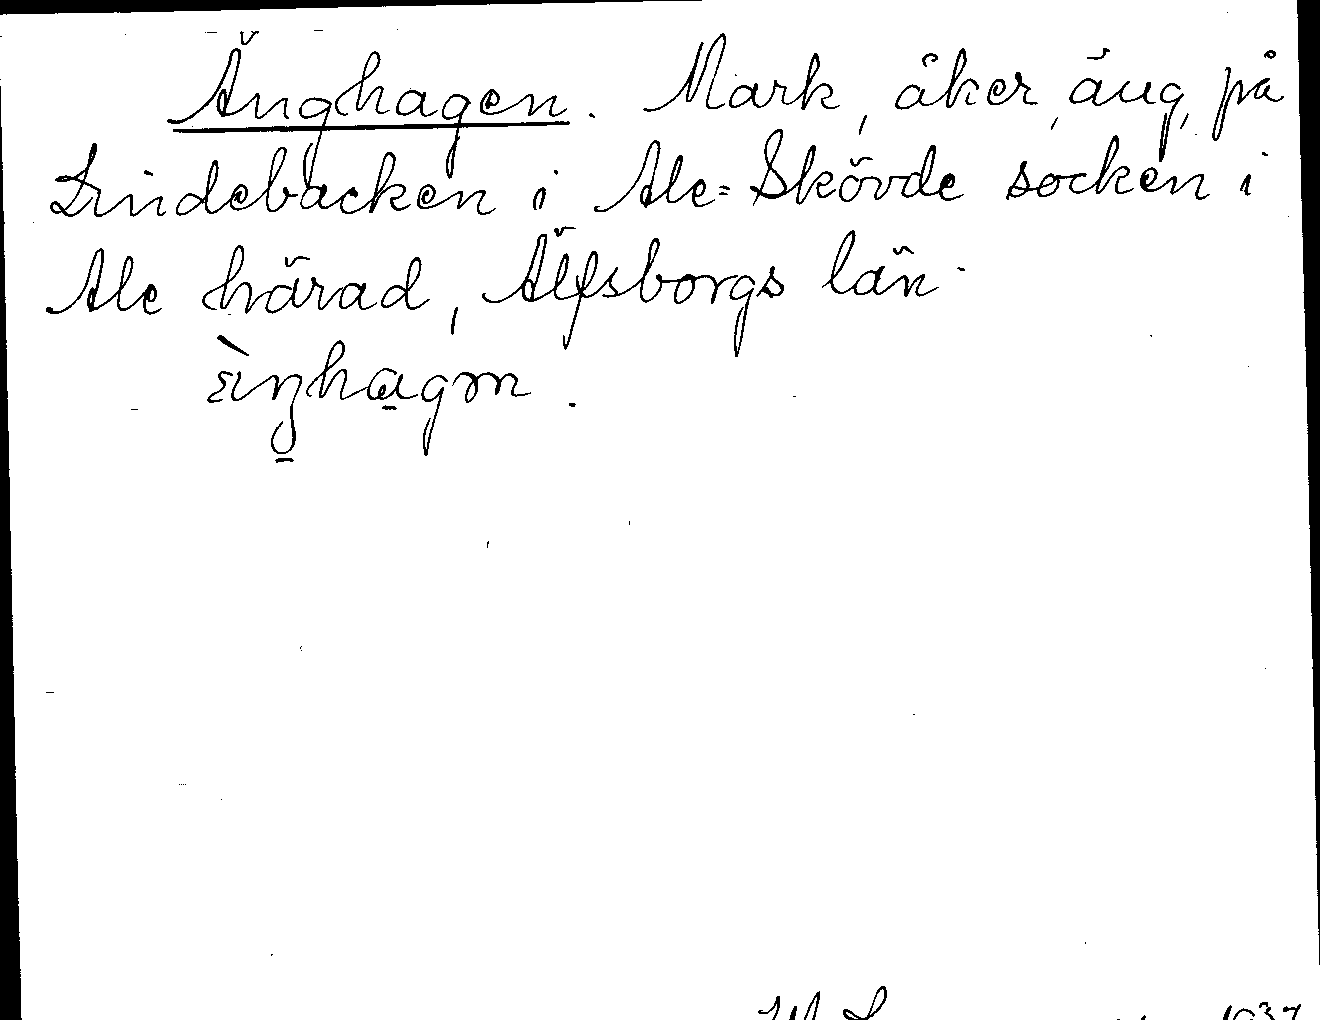 Änghagen. Mark, åker, äng, på
Lindebacken i Ale=Skövde socken i
Ale härad, Älfsborgs län.